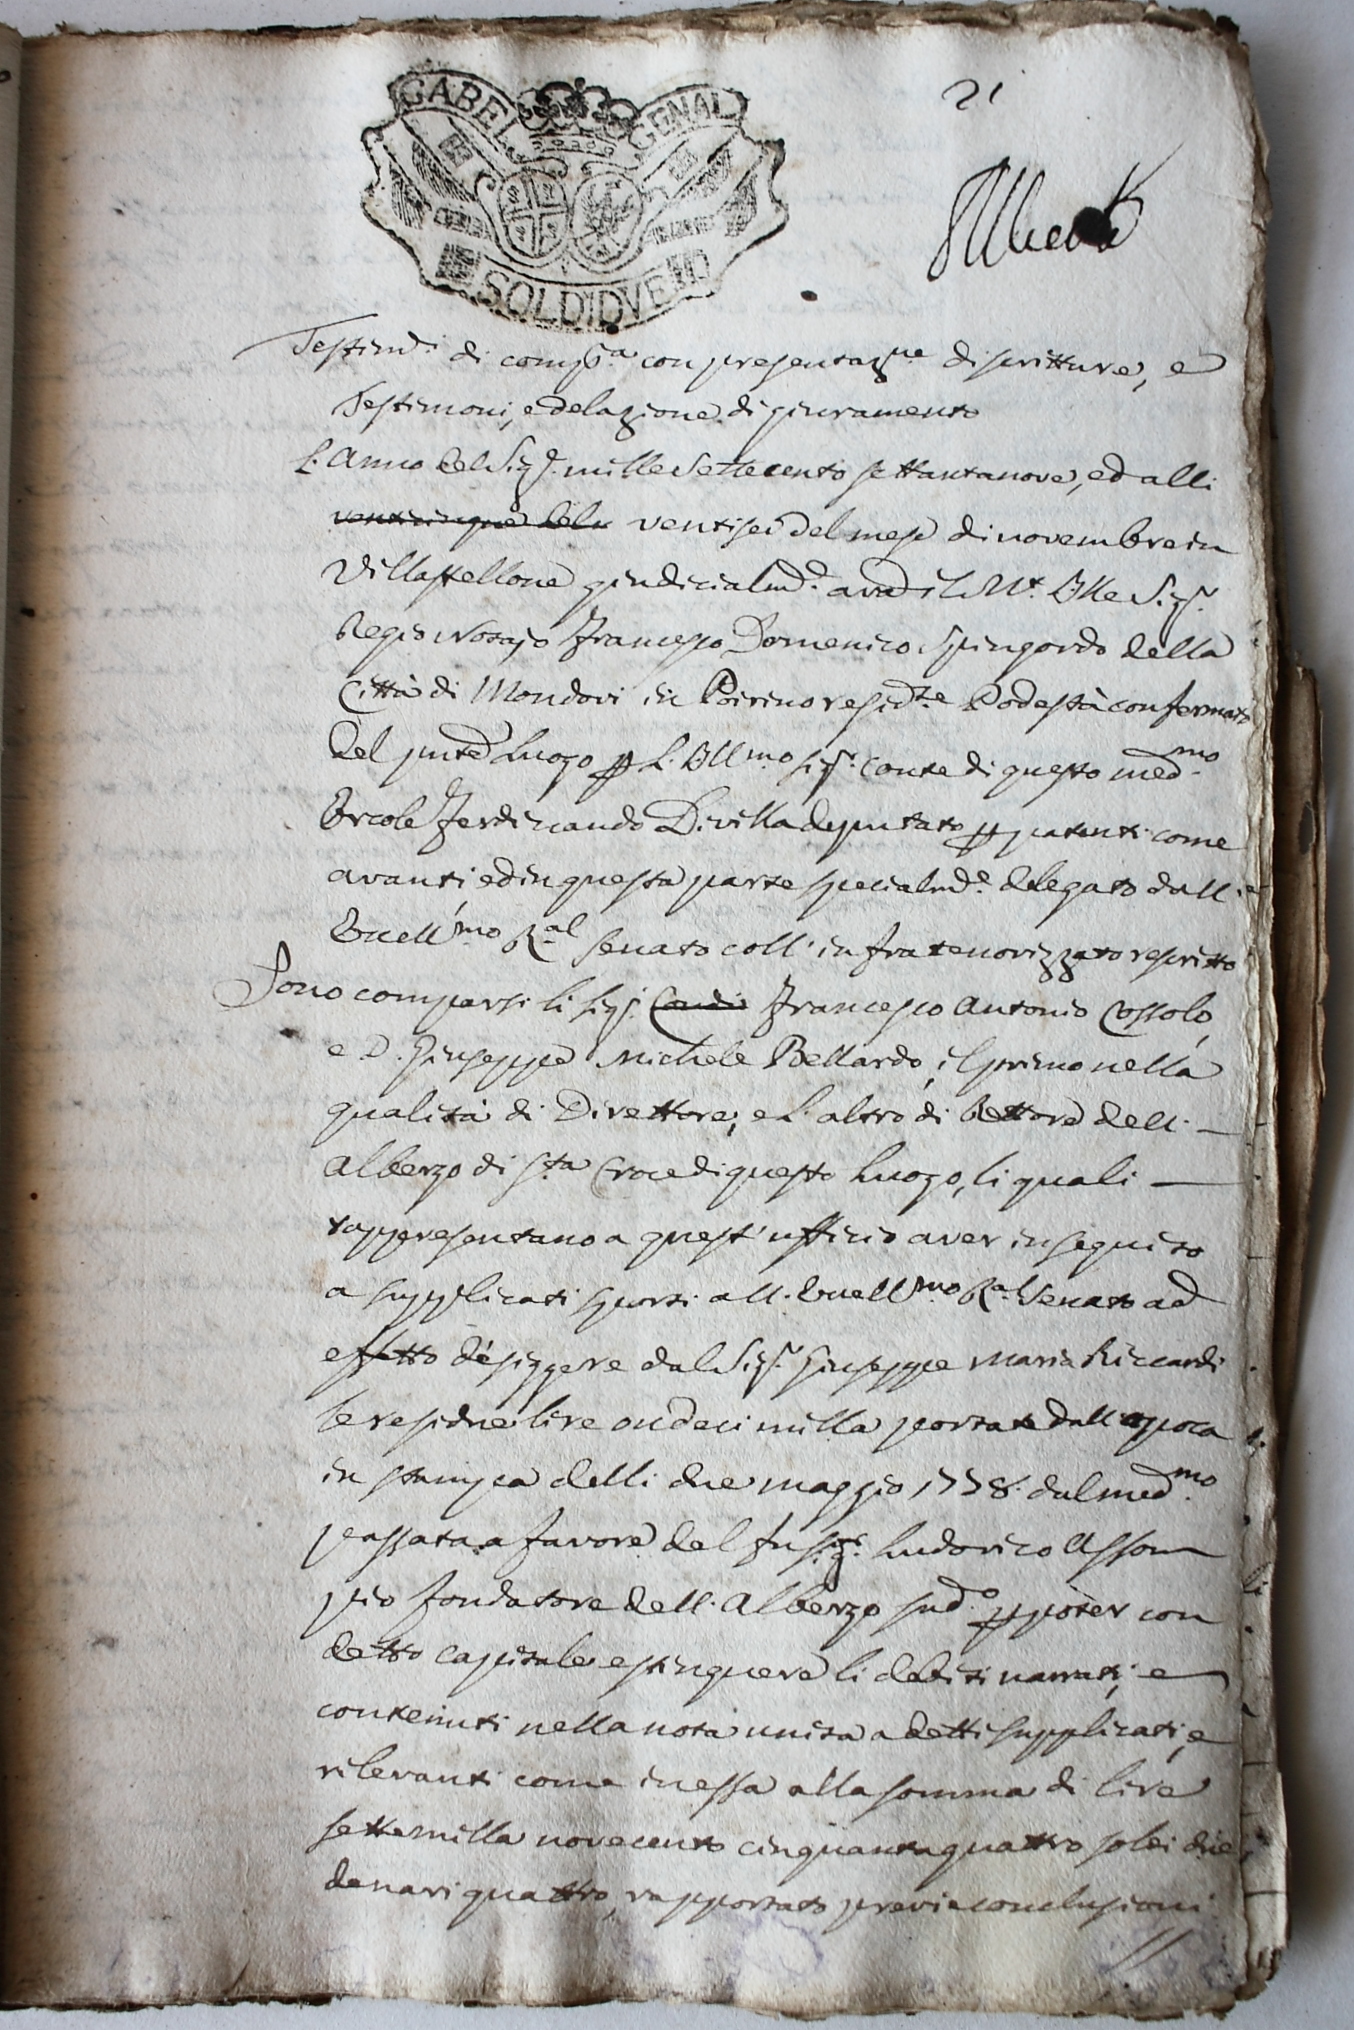 21
GABEL GENAL
SOLDI DVE
Testim.li di comp.sa con presentaz.ne di scritture, e
Testimoni, e delazione di giuramento
L'Anno del Sig.r mille settecento settantanove, ed alli
venticinque del ventisei del mese di novembre in
Villastellone giudicialm.e avanti il M.to Ill.e Sig.r
Regio Notajo Francesco Domenico Spingardo della
Città di Mondovì in Poirino resid.te Podestà confermato
del pnte Luogo per L'Ill.mo Sig.r Conte di questo med.mo
Ercole Ferdinando Di villa deputato per patenti come
avanti ed in questa parte specialm.e delegato dall'
Eccell.mo R.al Senato coll'infratenorizzato rescritto
Sono comparsi li Sig.ri Francesco Antonio Cossolo,
e D. Giuseppe Michele Bellardo, il primo nella
qualità di Direttore, e L'altro di Rettore dell'
Albergo di S.ta Croce di questo Luogo, li quali
rappresentano a quest'ufficio aver in seguito
a supplicati sporti all'Eccell.mo R.al Senato ad
effetto d'esiggere dal Sig.r Giuseppe Maria Riccardi
le residue lire ondeci milla portate dall'apoca
in stampa delli due maggio 1758. dal med.mo
passata a favore del fu Sig.r Ludovico Assom
pio fondatore dell'Albergo sud.o per poter con
detto capitale estinguere li debiti narrati, e
contenuti nella nota unita a detti supplicati, e
rilevanti come in essa alla somma di lire
settemilla novecento cinquantaquattro soldi due
denari quattro, rapportato previe conclusioni